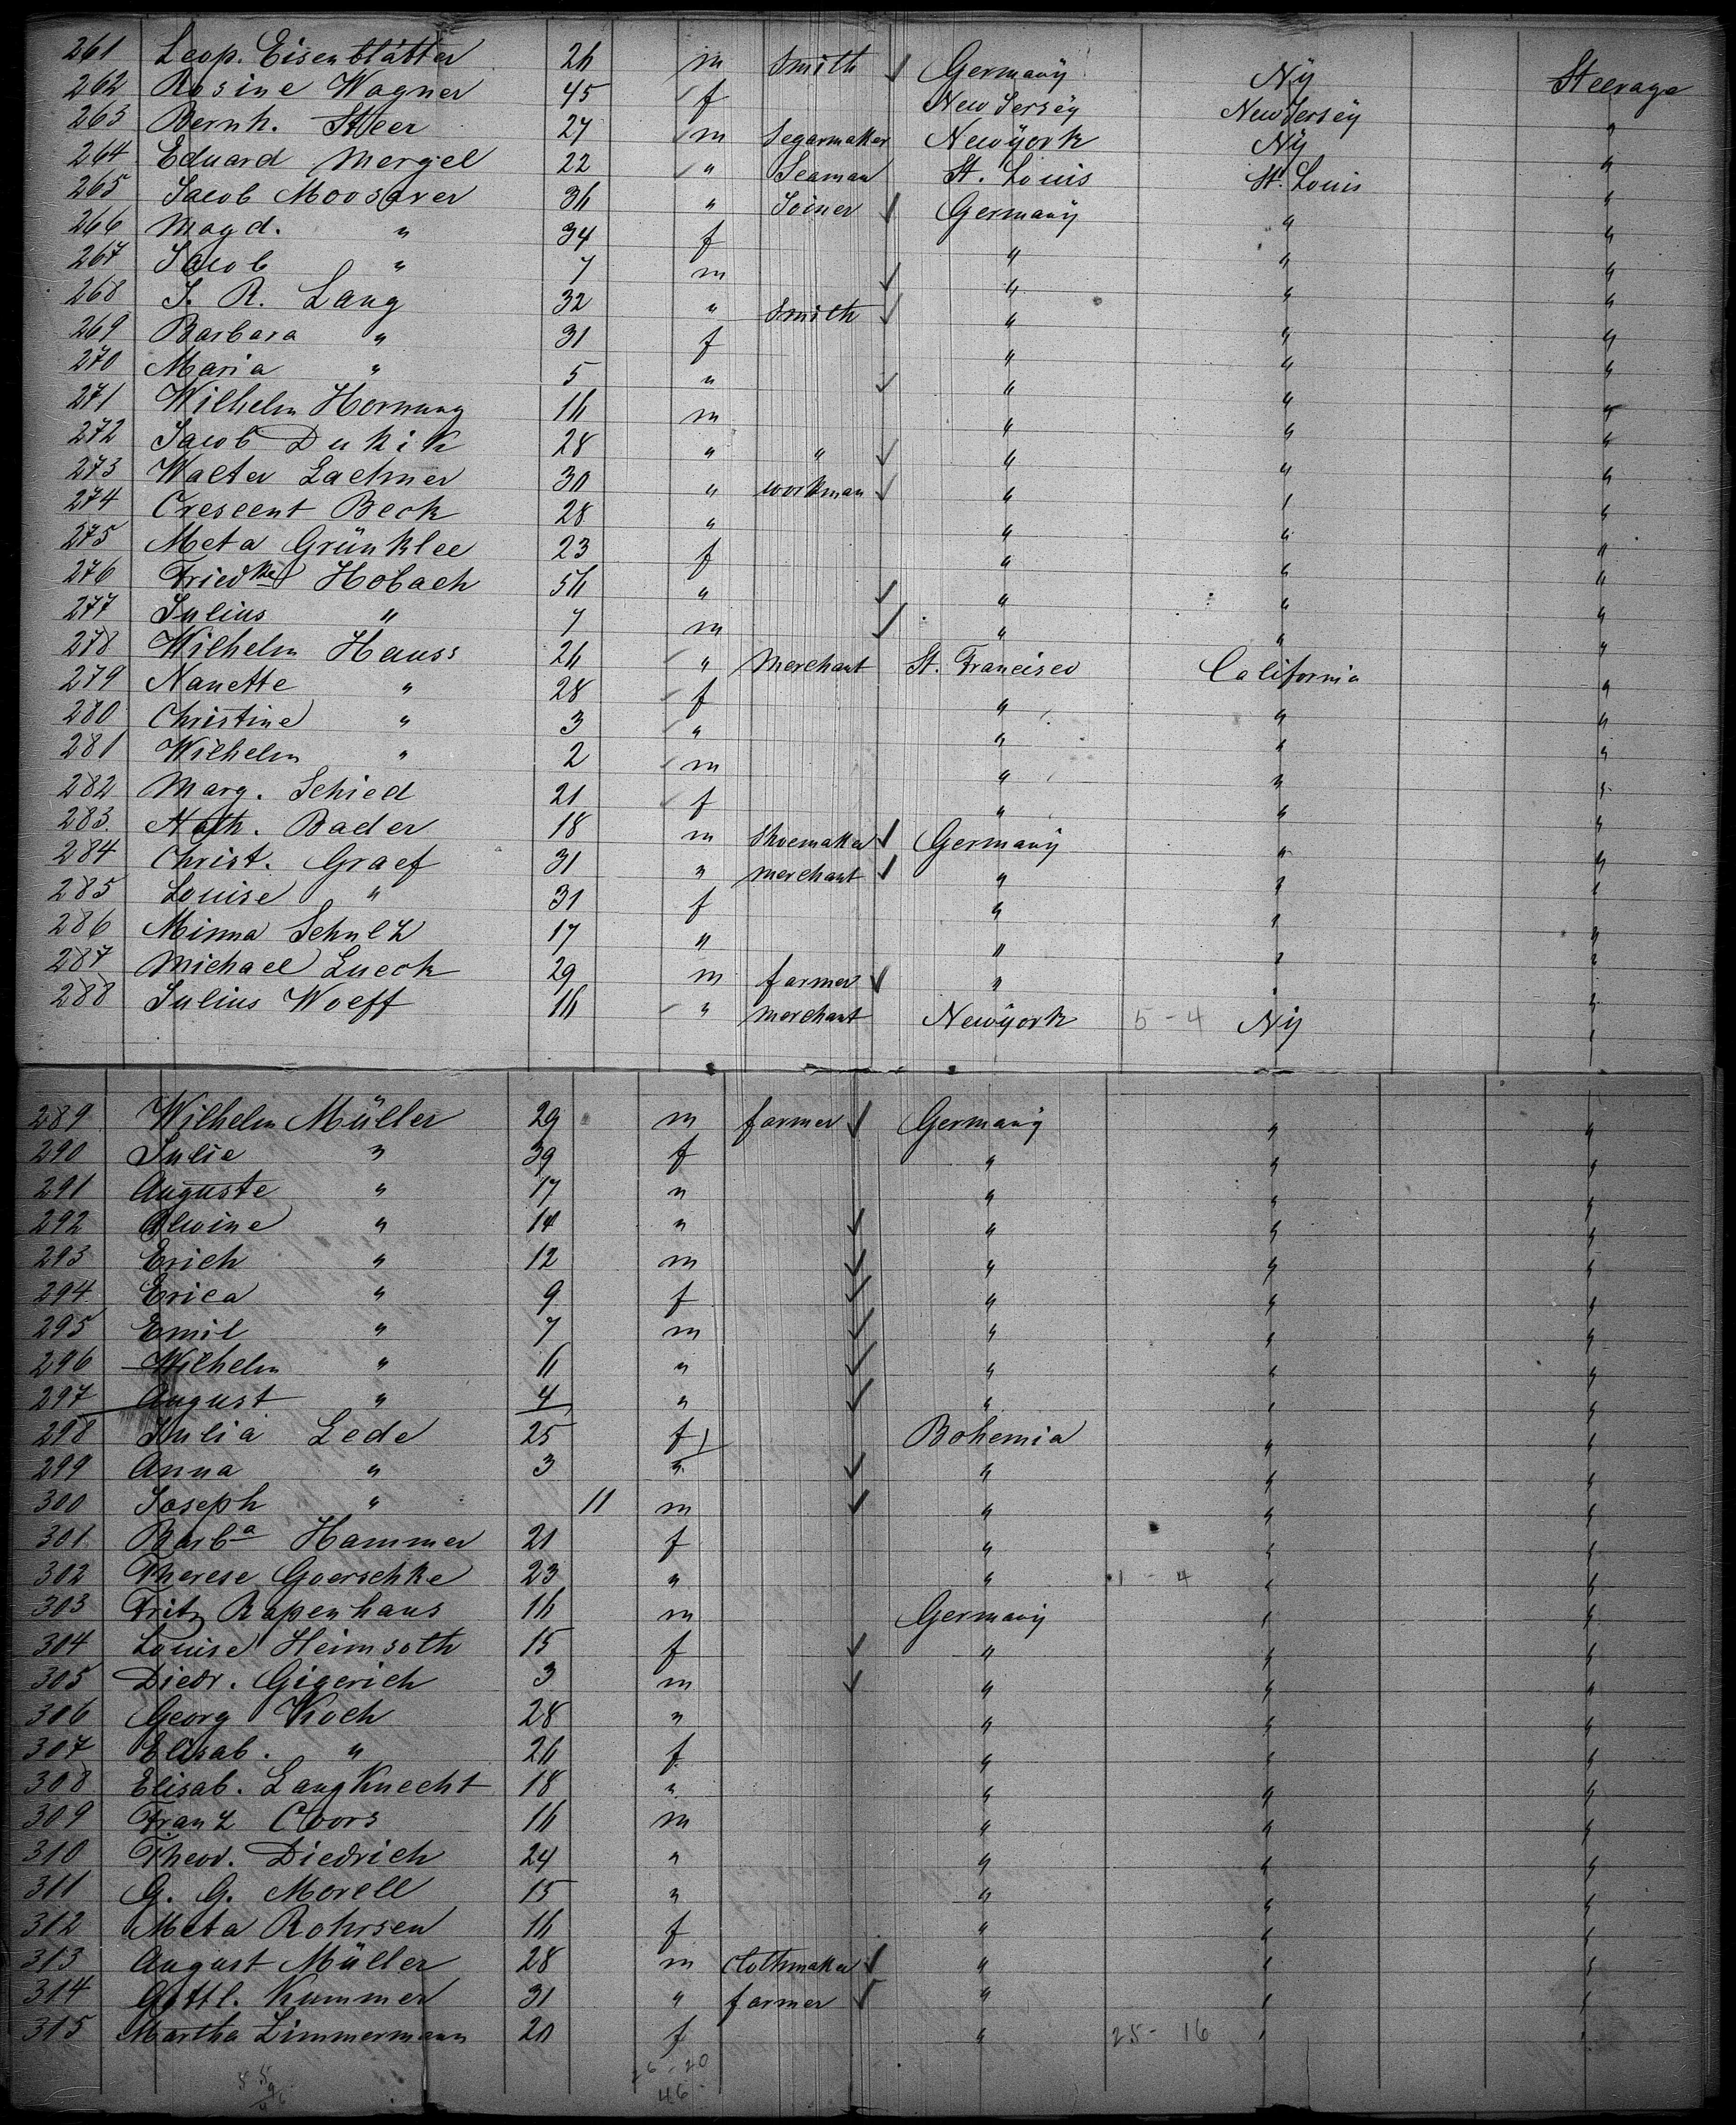 261 Leop. Eisenblätter 26 m Smith ✓ Germany Ny Steerage
262 Rosine Wagner 45 ✓ f New Jersey New Jersey "
263 Bernh. Steer 27 ✓ m Segarmaker Newyork Ny "
264 Eduard Mergel 22 ✓ " Seaman St. Louis St. Louis "
265 Jacob Moosaver 36 " Joiner ✓ Germany " "
266 Magd. " 34 f " " "
267 Jacob " 7 m ✓ " " "
268 J. R. Lang 32 " Smith ✓ " " "
269 Barbara " 31 f " " "
270 Maria " 5 " ✓ " " "
271 Wilhelm Hornung 16 m " " "
272 Jacob Dukik 28 " " ✓ " " "
273 Walter Lachner 30 " workman ✓ " " "
274 Crescent Beck 28 " " " "
275 Meta Grünklee 23 f " " "
276 Friedke Hobach 56 " ✓ " " "
277 Julius " 7 m ✓ " " "
278 Wilhelm Hauss 26 ✓ " Merchant St. Francisco California "
279 Nanette " 28 ✓ f " " "
280 Christine " 3 ✓ " " " "
281 Wilhelm " 2 ✓ m " " "
282 Marg. Schied 21 ✓ f " " "
283. Nath. Bader 18 m Shoemaker ✓ Germany " "
284 Christ. Graef 31 " merchant ✓ " " "
285 Louise " 31 f " " "
286 Minna Schulz 17 " " " "
287 Michael Lueck 29 m farmer ✓ " " "
288 Julius Wolff 16 ✓ " merchant Newyork 5 - 4 Ny "
289 Wilhelm Müller 29 m farmer ✓ Germany " "
290 Julie " 39 f " " "
291 Auguste " 17 " " " "
292 Alwine " 14 " ✓ " " "
293 Erich " 12 m ✓ " " "
294 Erica " 9 f ✓ " " "
295 Emil " 7 m ✓ " " "
296 Wilhelm " 6 " ✓ " " "
297 August " 4 " ✓ " " "
298 Julia Lede 25 f Bohemia " "
299 Anna " 3 " ✓ " " "
300 Joseph " 11 m ✓ " " "
301 Barba Hammer 21 f " " "
302 Therese Goerschke 23 " " 1 - 4 " "
303 Fritz Rapenhaus 16 m Germany " "
304 Louise Heimsoth 15 f ✓ " " "
305 Diedr. Gigerich 3 m ✓ " " "
306 Georg Koch 28 " " " "
307 Elisab. " 26 f " " "
308 Elisab. Langknecht 18 " " " "
309 Franz Coors 16 m " " "
310 Theod. Diedrich 24 " " " "
311 G. G. Morell 15 " " " "
312 Meta Rohrsen 16 f " " "
313 August Müller 28 m Clothmaker ✓ " " "
314 Gottl. Kummer 31 " farmer ✓ " " "
315 Martha Zimmermann 20 f " 25 - 16 " "
26 - 20
46